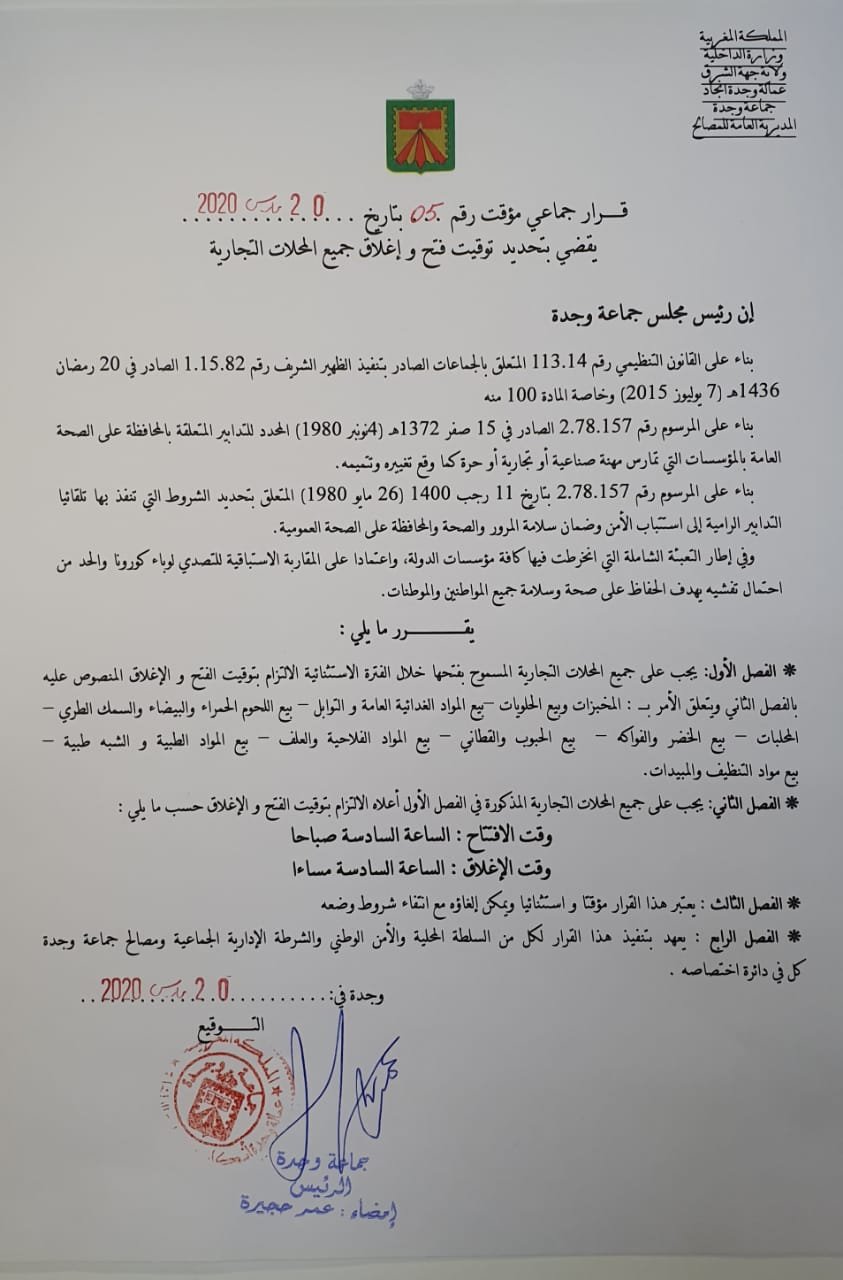 المملكة المغربية
وزارة الداخلية
ولاية جهة الشرق
عمالة وجدة انجاد
جماعة وجدة
المديرية العامة للمصالح
قــرار جماعي مؤقت رقم .05 بتاريخ 20 مارس 2020
يقضي بتحديد توقيت فتح و إغلاق جميع المحلات التجارية
إن رئيس مجلس جماعة وجدة
بناء على القانون التنظيمي رقم 113.14 المتعلق بالجماعات الصادر بتنفيذ الظهير الشريف رقم 1.15.82 الصادر في 20 رمضان
1436هـ (7 يوليوز 2015) وخاصة المادة 100 منه
بناء على المرسوم رقم 2.78.157 الصادر في 15 صفر 1372هـ (4نونبر 1980) المحدد للتدابير المتعلقة بالمحافظة على الصحة
العامة بالمؤسسات التي تمارس مهنة صناعية أو تجارية أو حرة كما وقع تغييره وتتميمه.
بناء على المرسوم رقم 2.78.157 بتاريخ 11 رجب 1400 (26 مايو 1980) المتعلق بتحديد الشروط التي تنفذ بها تلقائيا
التدابير الرامية إلى استتباب الأمن وضمان سلامة المرور والصحة والمحافظة على الصحة العمومية.
وفي إطار التعبئة الشاملة التي انخرطت فيها كافة مؤسسات الدولة، واعتمادا على المقاربة الاستباقية للتصدي لوباء كورونا والحد من
احتمال تفشيه بهدف الحفاظ على صحة وسلامة جميع المواطنين والموطنات.
يقـــــــرر ما يلي :
* الفصل الأول: يجب على جميع المحلات التجارية المسموح بفتحها خلال الفترة الاستثنائية الالتزام بتوقيت الفتح و الإغلاق المنصوص عليه
بالفصل الثاني ويتعلق الأمر بـ : المخبزات وبيع الحلويات –بيع المواد الغدائية العامة و التوابل – بيع اللحوم الحمراء والبيضاء والسمك الطري –
المحلبات – بيع الخضر والفواكه – بيع الحبوب والقطاني – بيع المواد الفلاحية والعلف – بيع المواد الطبية و الشبه طبية –
بيع مواد التنظيف والمبيدات.
* الفصل الثاني: يجب على جميع المحلات التجارية المذكورة في الفصل الأول أعلاه الالتزام بتوقيت الفتح و الإغلاق حسب ما يلي :
وقت الافتتاح : الساعة السادسة صباحا
وقت الإغلاق : الساعة السادسة مساءا
* الفصل الثالث : يعتبر هذا القرار مؤقتا و استثنائيا ويمكن إلغاؤه مع انتفاء شروط وضعه
* الفصل الرابع : يعهد بتنفيذ هذا القرار لكل من السلطة المحلية والأمن الوطني والشرطة الإدارية الجماعية ومصالح جماعة وجدة
كل في دائرة اختصاصه .
وجدة في:..........20 مارس 2020..
التـــوقيع
المملكة المغربية
جماعة وجدة
جماعة وجدة
الرئيس
إمضاء : عمر حجيرة